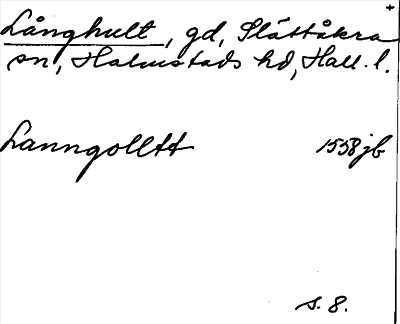 +
Långhult, gd, Slättåkra
sn, Halmstads hd, Hall. l.
Lanngolltt 1558 jb
s. 8.